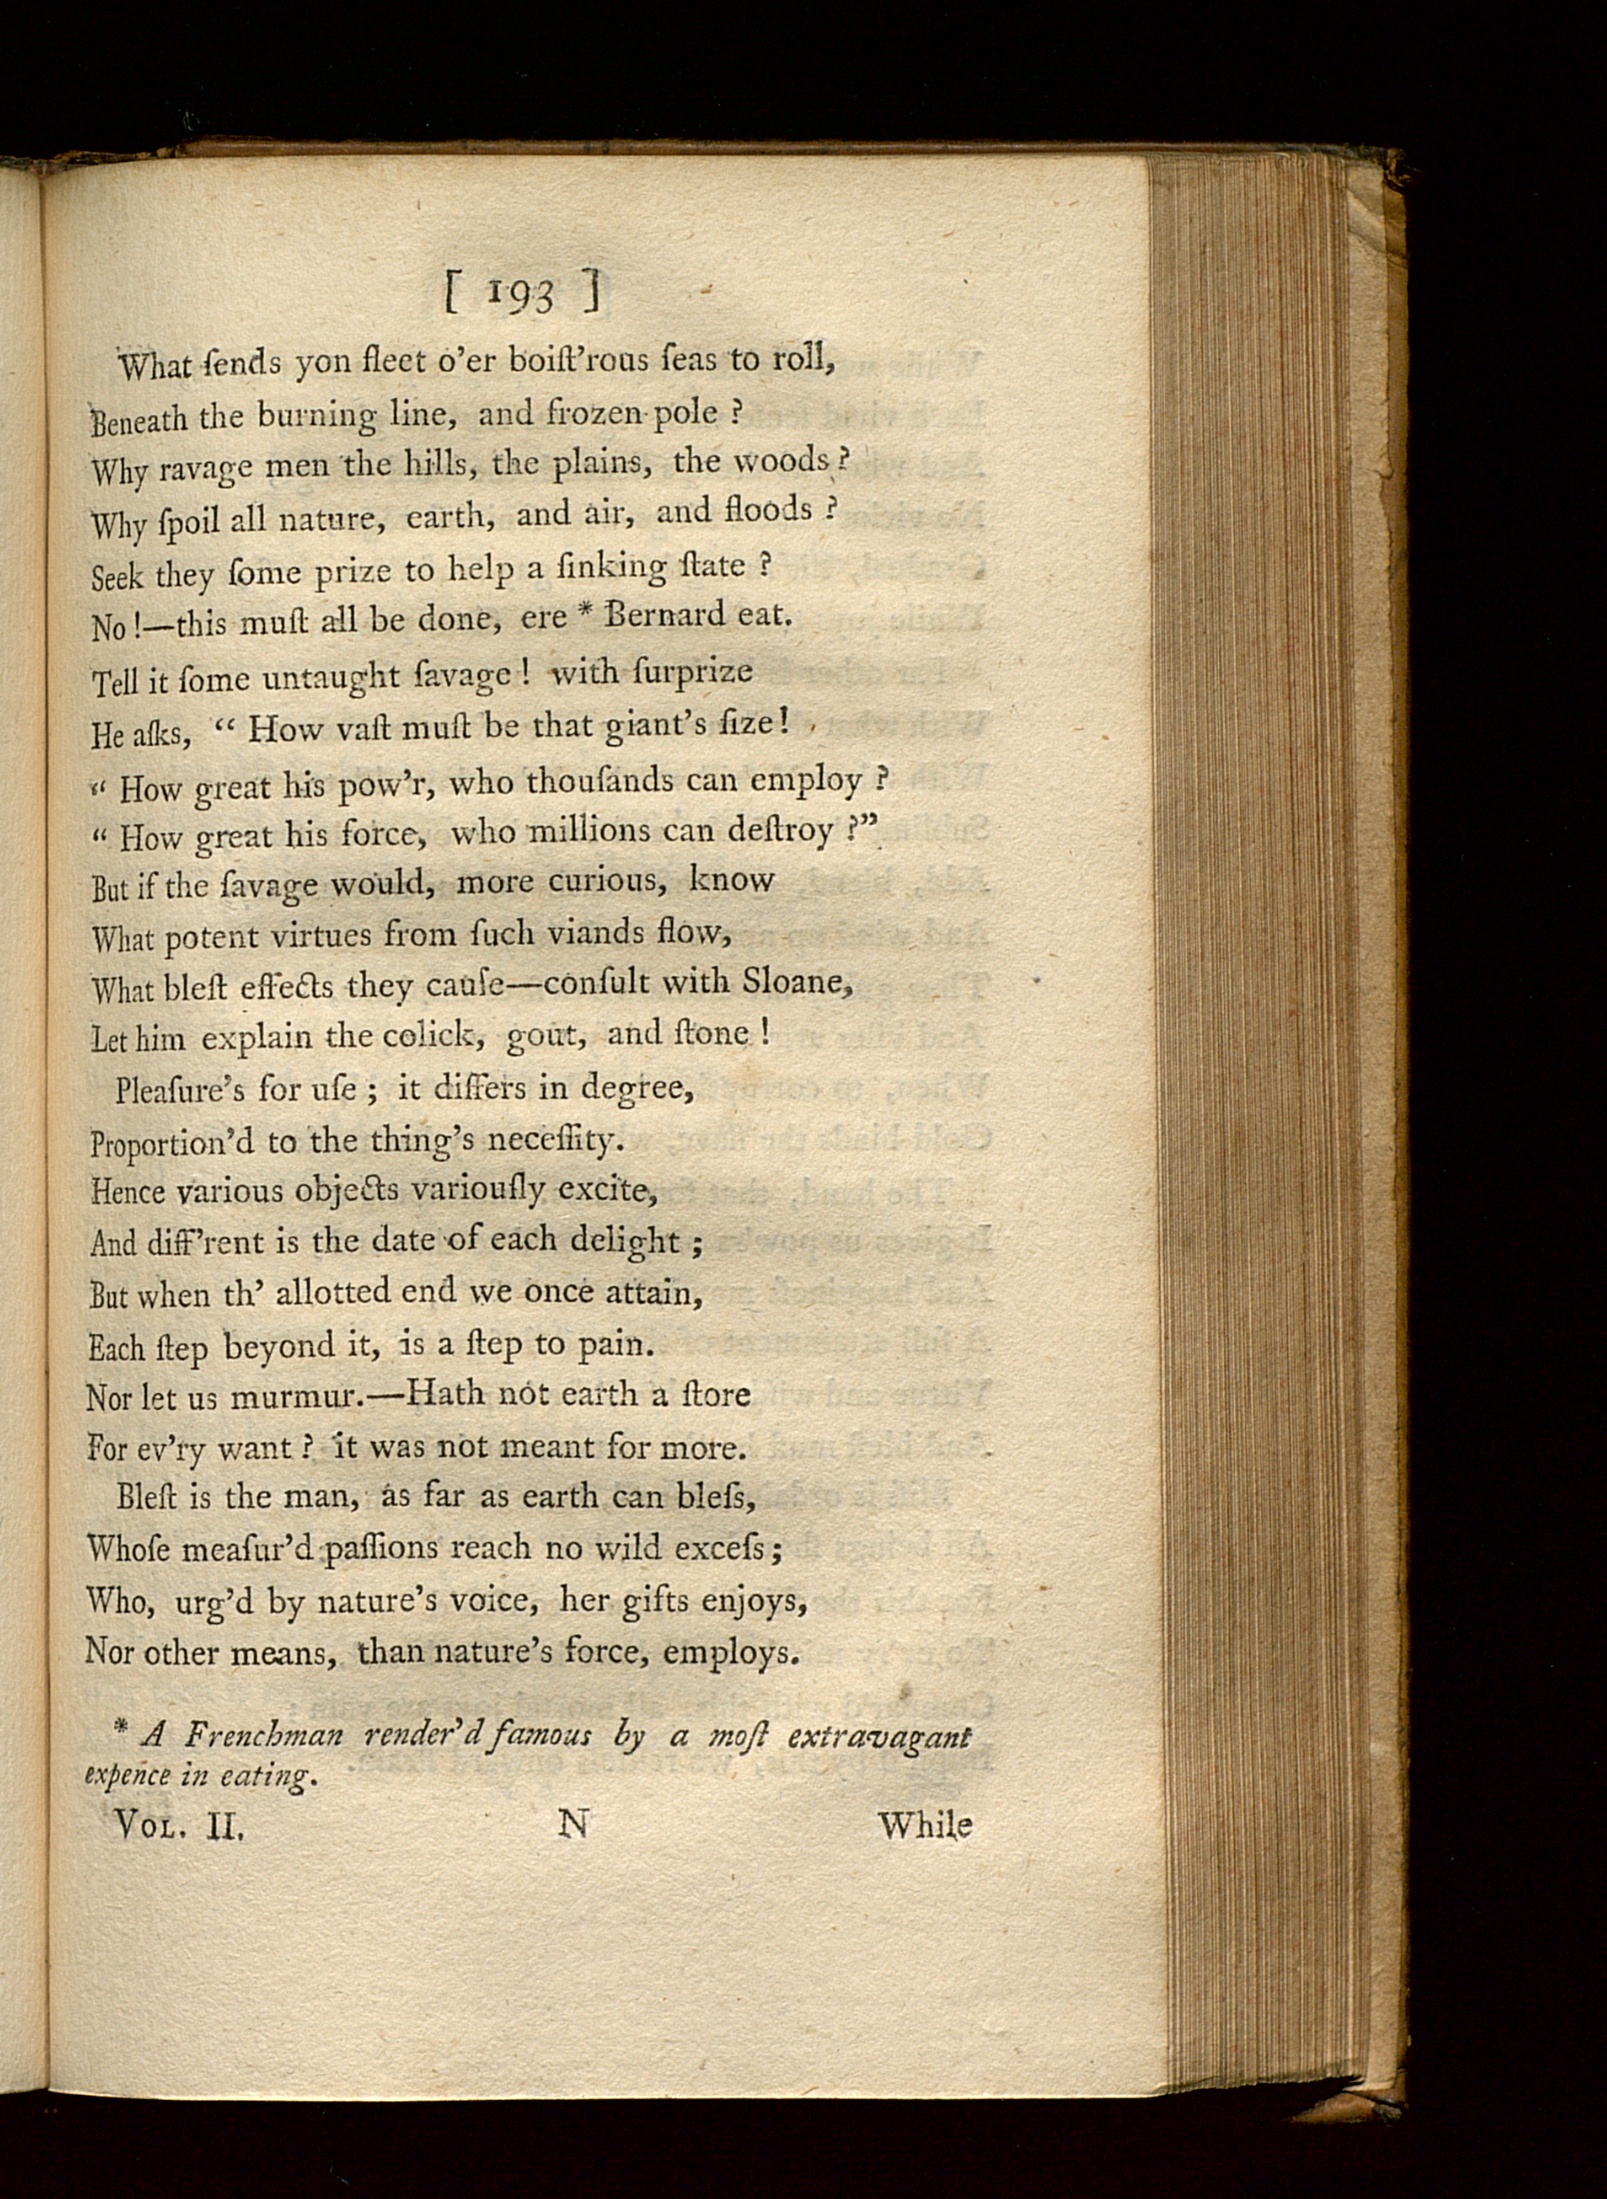 [ 193 ]
What ſends yon fleet o'er boiſt'rous ſeas to roll,
Beneath the burning line, and frozen pole ?
Why ravage men the hills, the plains, the woods ?
Why ſpoil all nature, earth, and air, and floods ?
Seek they ſome prize to help a ſinking ſtate ?
No !—this muſt all be done, ere * Bernard eat.
Tell it ſome untaught ſavage ! with ſurprize
He aſks, “ How vaſt muſt be that giant's ſize !
“ How great his pow'r, who thouſands can employ ?
“ How great his force, who millions can deſtroy ?”
But if the ſavage would, more curious, know
What potent virtues from ſuch viands flow,
What bleſt effects they cauſe—conſult with Sloane,
Let him explain the colick, gout, and ſtone !
Pleaſure's for uſe ; it differs in degree,
Proportion'd to the thing's neceſſity.
Hence various objects variouſly excite,
And diff'rent is the date of each delight ;
But when th' allotted end we once attain,
Each ſtep beyond it, is a ſtep to pain.
Nor let us murmur.—Hath not earth a ſtore
For ev'ry want ? it was not meant for more.
Bleſt is the man, as far as earth can bleſs,
Whoſe meaſur'd paſſions reach no wild exceſs ;
Who, urg'd by nature's voice, her gifts enjoys,
Nor other means, than nature's force, employs.
* A Frenchman render'd famous by a moſt extravagant
expence in eating.
VOL. II. N While